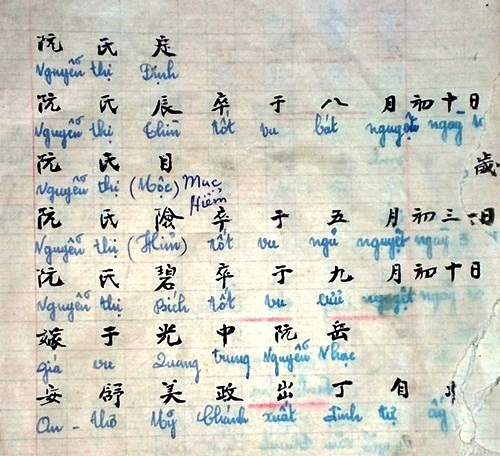 阮 氏 定
Nguyễn thị Đính
阮 氏 辰 卒 于 八 月 初 十 日
Nguyễn thị Thìn tốt vu bát nguyệt ngày
阮 氏 目 歲
Nguyễn thị (Mộc) Mục
阮 氏 險 卒 于 五 月 初 三 日
Hiểm
Nguyễn thị (Hiển) tốt vu ngũ nguyệt ngày 3
阮 氏 碧 卒 于 九 月 初 十 日
Nguyễn thị Bích tốt vu cửu nguyệt ngày
嫁 于 光 中 阮 岳
giá vu Quang trung Nguyễn Nhạc
安 舒 美 政 出 丁 自
An - thơ Mỹ Chánh xuất đinh tự ấy